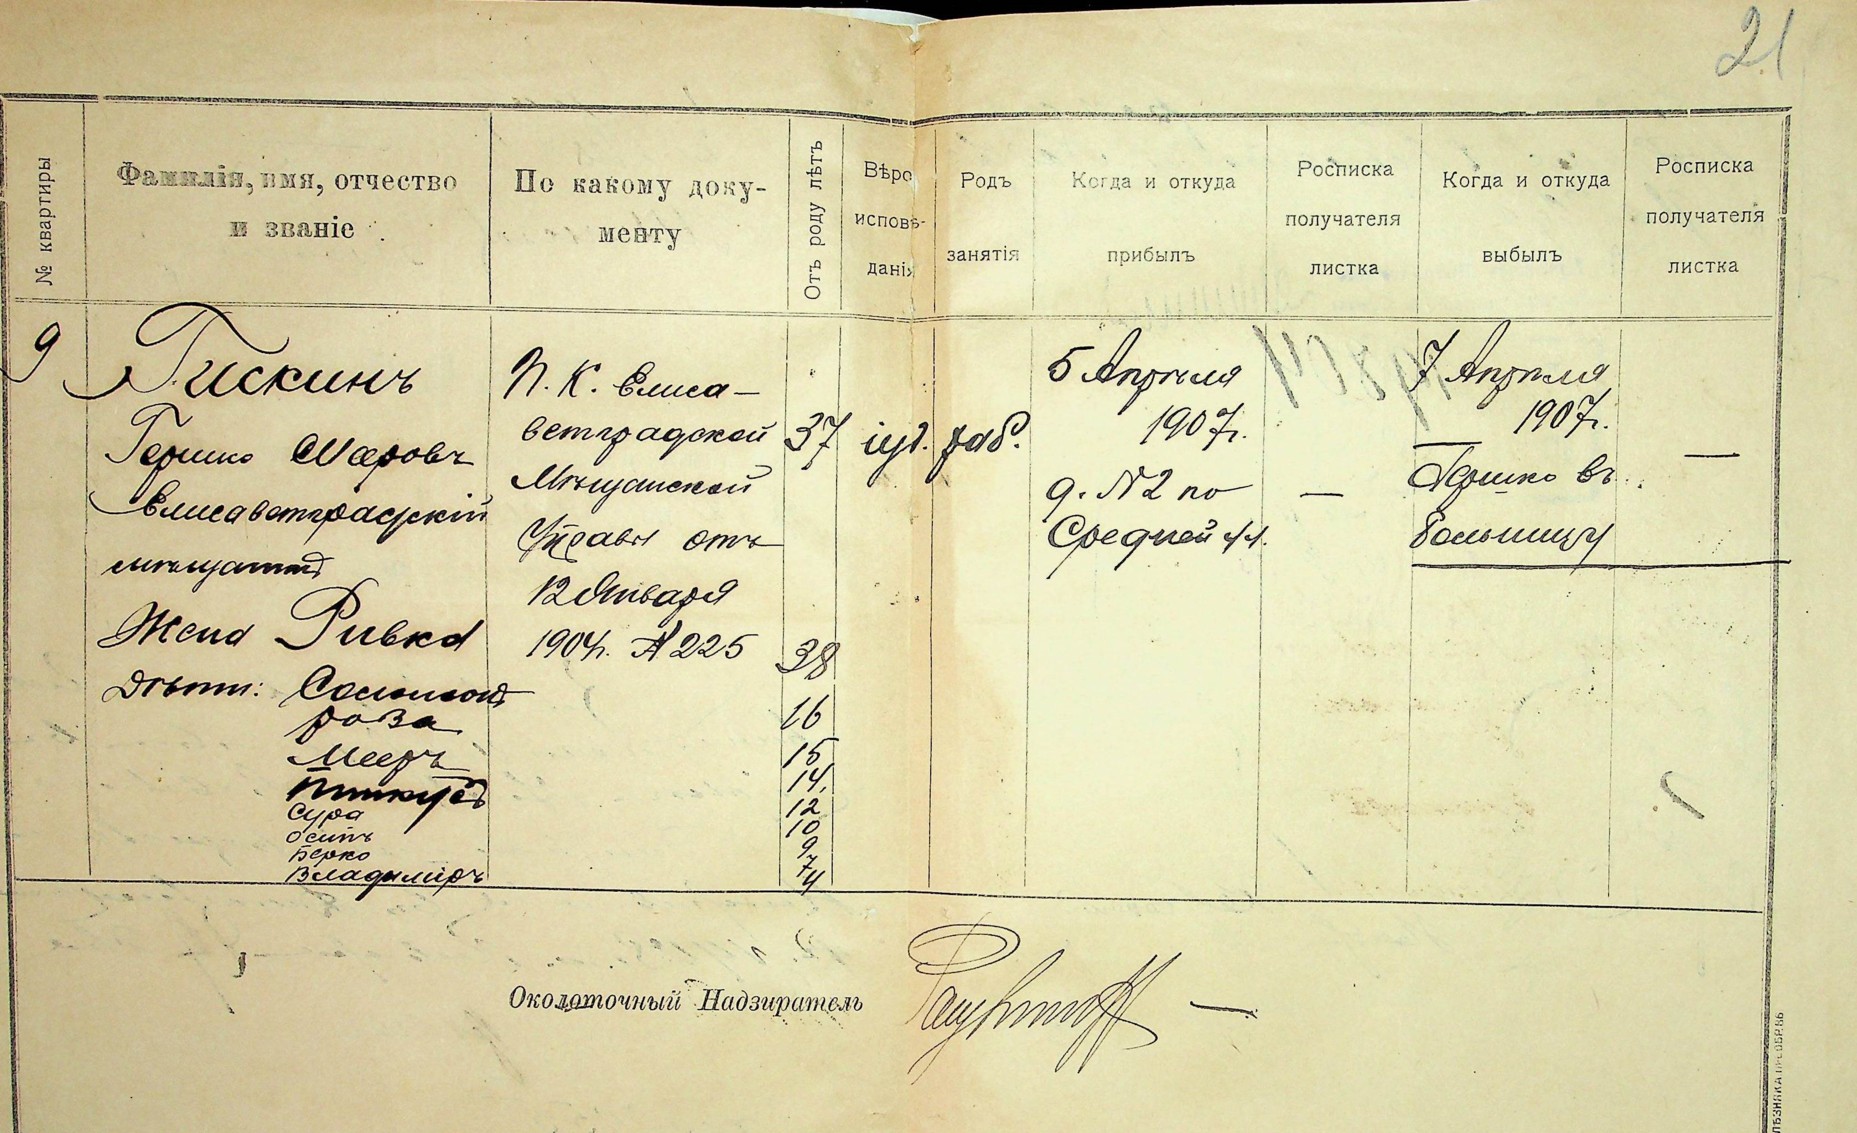 21
№ квартиры
Фамилія, имя, отчество
и званіе
По какому доку-
менту
Отъ роду лѣтъ
Вѣро
исповѣ-
данія
Родъ
занятія
Когда и откуда
прибылъ
Росписка
получателя
листка
Когда и откуда
выбылъ
Росписка
получателя
листка
9
Гискинъ
Гершко Мееровъ
Елисаветградскій
мѣщанинъ
Жена Ривка
Дѣти: Соломонъ
роза
Мееръ
Пинкусъ
Сура
Осипъ
Берко
Владимиръ
П. К. Елиса-
ветградской
Мѣщанской
Управы отъ
12 Января
1904г. № 225
37
38
16
15
14
12
10
9
7
4
іуд.
раб.
5 Апрѣля
1907г.
д. № 2 по
Средней ул.
—
7 Апрѣля
1907г.
Гершко въ
больницу
—
Околоточный Надзиратель